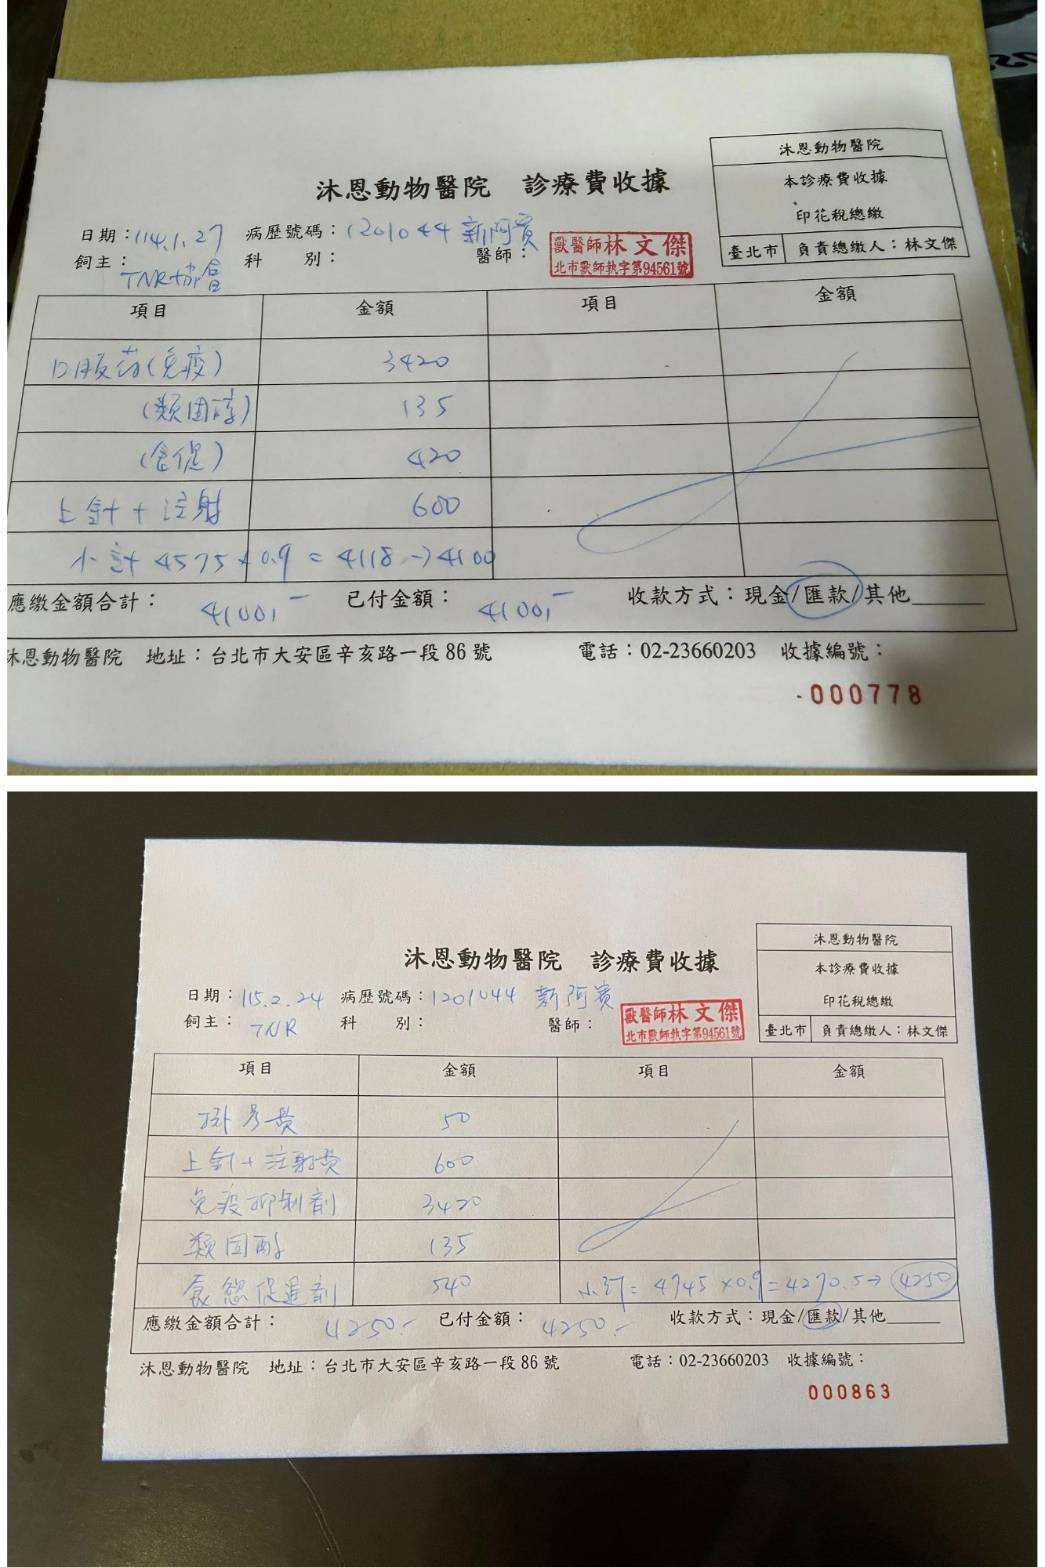 沐恩動物醫院
本診療費收據
印花稅總繳
臺北市 負責總繳人：林文傑
沐恩動物醫院 診療費收據
日期：114.1.27 病歷號碼：1201044 新阿賓
飼主：TNR協會 科 別： 醫師：
獸醫師林文傑
北市獸師執字第94561號
項目 金額 項目 金額
口服药(免疫) 3420
(類固醇) 135
(食促) 420
上針+注射 600
小計 4575×0.9=4118→4100
應繳金額合計：4100,- 已付金額：4100,- 收款方式：現金/匯款/其他
沐恩動物醫院 地址：台北市大安區辛亥路一段86號 電話：02-23660203 收據編號：
000778
沐恩動物醫院
本診療費收據
印花稅總繳
臺北市 負責總繳人：林文傑
沐恩動物醫院 診療費收據
日期：115.2.24 病歷號碼：1201044 新阿賓
飼主：TNR 科 別： 醫師：
獸醫師林文傑
北市獸師執字第94561號
項目 金額 項目 金額
掛号費 50
上針+注射費 600
免疫抑制劑 3420
類固醇 135
食慾促進劑 540 小計=4745×0.9=4270.5→4250
應繳金額合計：4250.- 已付金額：4250.- 收款方式：現金/匯款/其他
沐恩動物醫院 地址：台北市大安區辛亥路一段86號 電話：02-23660203 收據編號：
000863